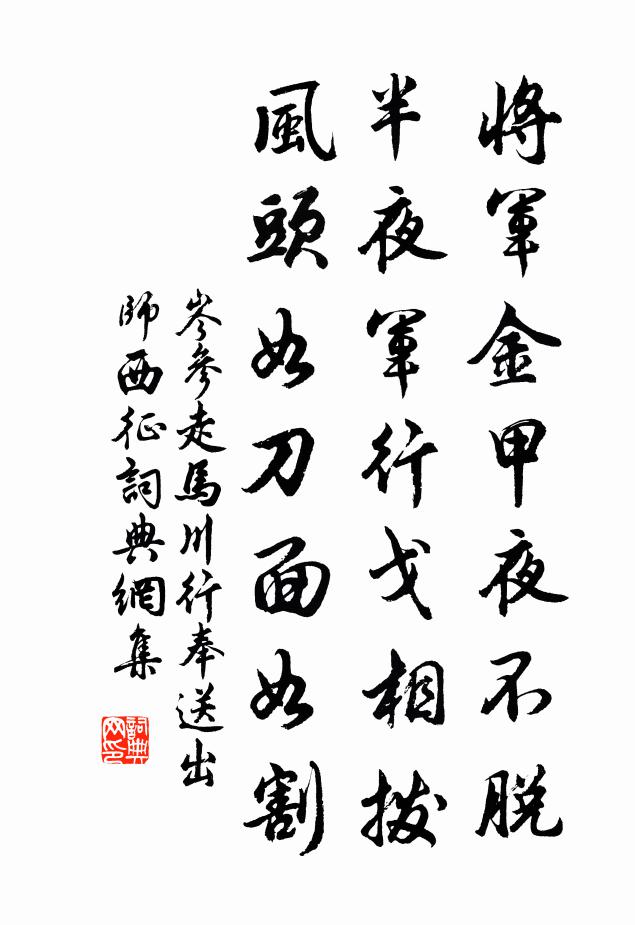 將軍金甲夜不脫
半夜軍行戈相撥
風頭如刀面如割
岑參走馬川行奉送出
師西征詞典網集
詞典
网印